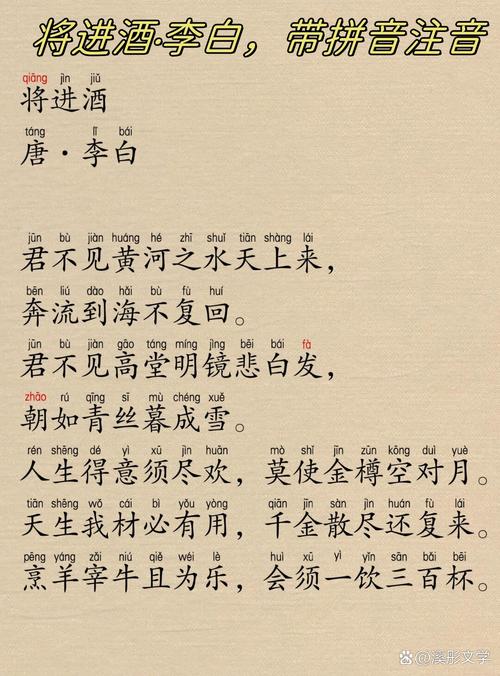 将进酒·李白，带拼音注音
qiāng jìn jiǔ
将进酒
táng lǐ bái
唐·李白
jūn bù jiàn huáng hé zhī shuǐ tiān shàng lái
君不见黄河之水天上来，
bēn liú dào hǎi bù fù huí
奔流到海不复回。
jūn bù jiàn gāo táng míng jìng bēi bái fà
君不见高堂明镜悲白发，
zhāo rú qīng sī mù chéng xuě
朝如青丝暮成雪。
rén shēng dé yì xū jìn huān mò shǐ jīn zūn kōng duì yuè
人生得意须尽欢，莫使金樽空对月。
tiān shēng wǒ cái bì yǒu yòng qiān jīn sàn jìn huán fù lái
天生我材必有用，千金散尽还复来。
pēng yáng zǎi niú qiě wéi lè huì xū yì yǐn sān bǎi bēi
烹羊宰牛且为乐，会须一饮三百杯。
@溪彤文学